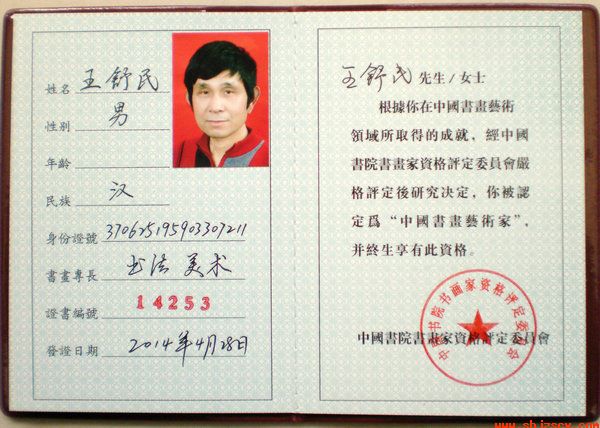 姓名 王舒民
性別 男
年齡
民族 汉
身份證號 370625195903307211
書畫專長 书法 美术
證書編號 14253
發證日期 2014年4月28日
王舒民 先生/女士
根據你在中國書畫藝術
領域所取得的成就，經中國
書院書畫家資格評定委員會嚴
格評定後研究決定，你被認
定爲“中國書畫藝術家”，
并終生享有此資格。
中國書院書畫家資格評定委員會